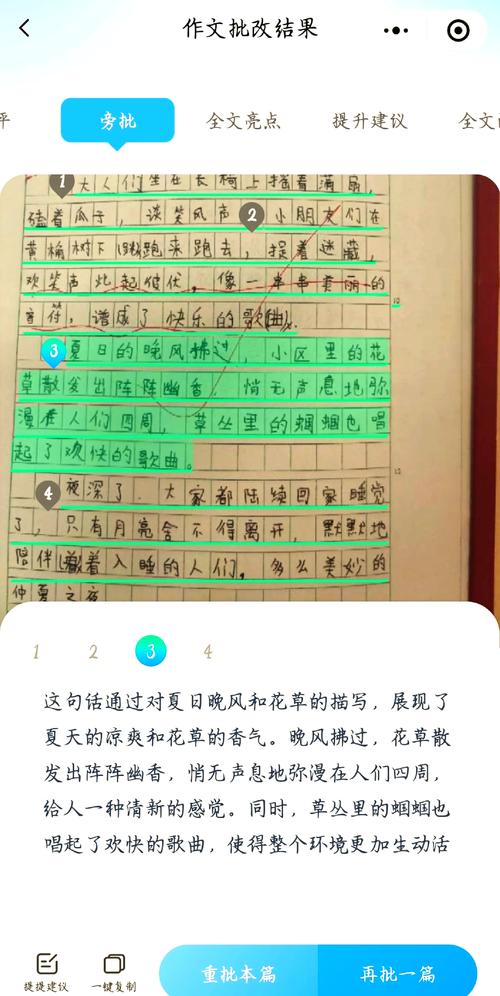 作文批改结果
平 旁批 全文亮点 提升建议 全文
1 大人们坐在长椅上摇着蒲扇,
磕着瓜子,谈笑风声 2 小朋友们在
黄桷树下 跑来跑去,捉着迷藏,
欢笑声此起彼伏,像一串串美丽的
音符,谱成了快乐的歌曲。
3 夏日的晚风拂过,小区里的花
草散发出阵阵幽香,悄无声息地弥
漫在人们四周,草丛里的蝈蝈也唱
起了欢快的歌曲。
4 夜深了.大家都陆续回家睡觉
了,只有月亮舍不得离开,默默地
陪伴着入睡的人们,多么美妙的
仲夏之夜
1 2 3 4
这句话通过对夏日晚风和花草的描写,展现了
夏天的凉爽和花草的香气。晚风拂过,花草散
发出阵阵幽香,悄无声息地弥漫在人们四周,
给人一种清新的感觉。同时,草丛里的蝈蝈也
唱起了欢快的歌曲,使得整个环境更加生动活
提提建议 一键复制 重批本篇 再批一篇